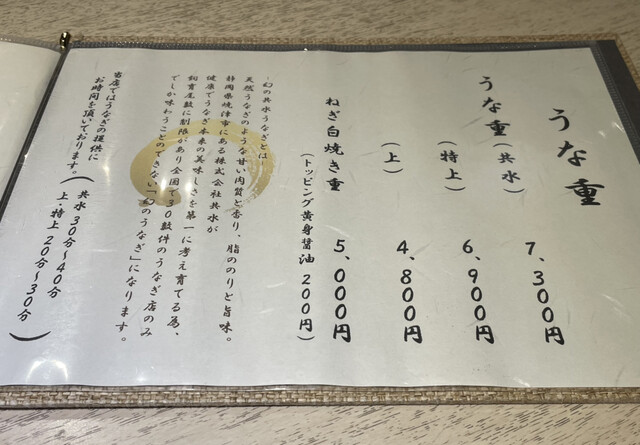 うな重
うな重(共水) 7、300円
(特上) 6、900円
(上) 4、800円
ねぎ白焼き重 5、000円
(トッピング黄身醤油 200円)
~幻の共水うなぎとは
天然うなぎのような甘い肉質と香り、脂ののりと旨味。
静岡県焼津市にある株式会社共水が
健康でうなぎ本来の美味しさを第一に考え育てる為、
飼育尾数に制限があり全国で30数件のうなぎ店のみ
でしか味わうことのできない「幻のうなぎ」になります。
当店ではうなぎの提供に
お時間を頂いております。
(共水 30分~40分
上・特上 20分~30分)